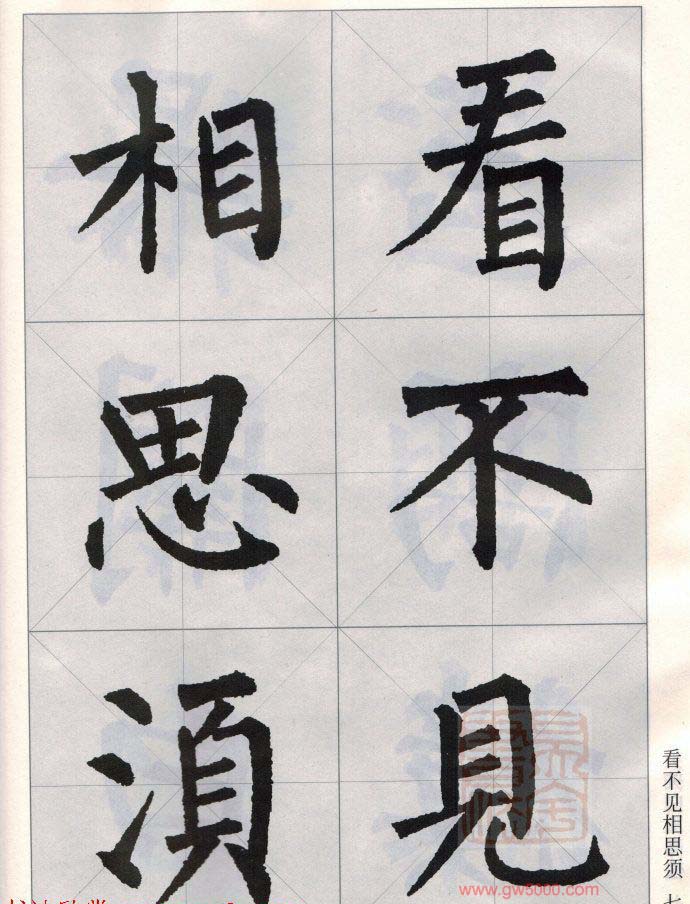 看不見
相思湏
看不见相思须 七
www.gw5000.com